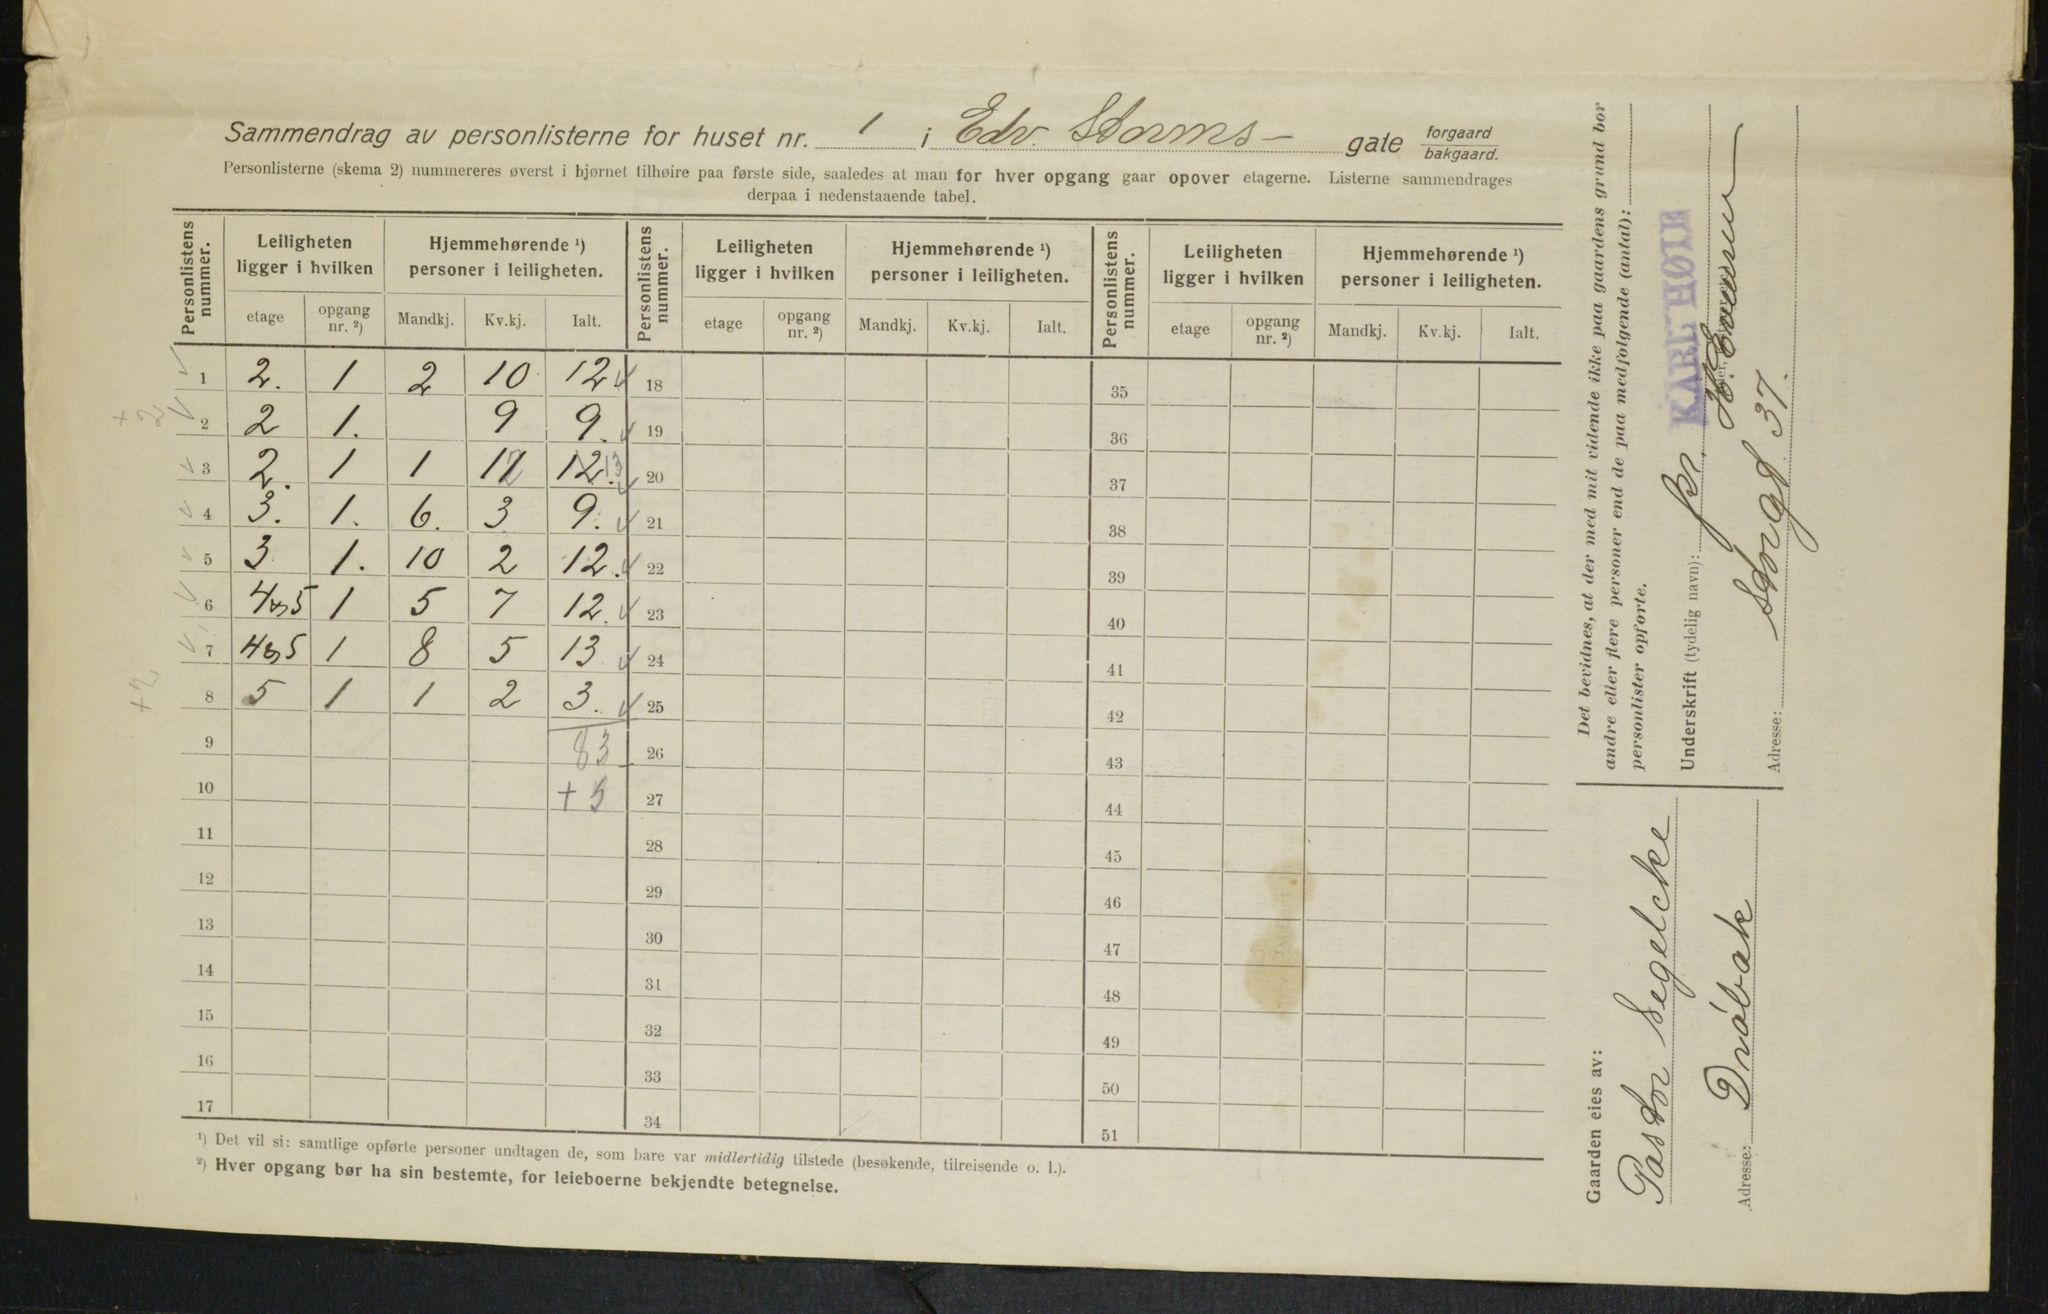 Sammendrag av personlisterne for huset nr. 1 i Edv. Storms- gate forgaard/bakgaard.
Personlisterne (skema 2) nummereres øverst i hjørnet tilhøire paa første side, saaledes at man for hver opgang gaar opover etagerne. Listerne sammendrages
derpaa i nedenstaaende tabel.
Personlistens nummer. Leiligheten ligger i hvilken Hjemmehørende ¹) personer i leiligheten. Personlistens nummer. Leiligheten ligger i hvilken Hjemmehørende ¹) personer i leiligheten. Personlistens nummer. Leiligheten ligger i hvilken Hjemmehørende ¹) personer i leiligheten.
etage opgang nr. ²) Mandkj. Kv.kj. Ialt. etage opgang nr. ²) Mandkj. Kv.kj. Ialt. etage opgang nr. ²) Mandkj. Kv.kj. Ialt.
1 2. 1 2 10 12 18 35
+2 2 2 1. 9 9. 19 36
3 2. 1 1 12. 13 20 37
4 3. 1. 6. 3 9. 21 38
5 3 1. 10 2 12. 22 39
6 4 5 1 5 7 12. 23 40
7 4 5 1 8 5 13 24 41
+2 8 5 1 1 2 3. 25 42
9 83 26 43
10 + 27 44
11 28 45
12 29 46
13 30 47
14 31 48
15 32 49
16 33 50
17 34 51
¹) Det vil si: samtlige opførte personer undtagen de, som bare var midlertidig tilstede (besøkende, tilreisende o. l.).
²) Hver opgang bør ha sin bestemte, for leieboerne bekjendte betegnelse.
Det bevidnes, at der med mit vidende ikke paa gaardens grund bor
andre eller flere personer end de paa medfolgende (antal):
personlister opforte.
KARL HØIE
Underskrift (tydelig navn): pr.
Adresse: Storgt 37.
Gaarden eies av:
Pastor Segelcke
Adresse: Drøbak